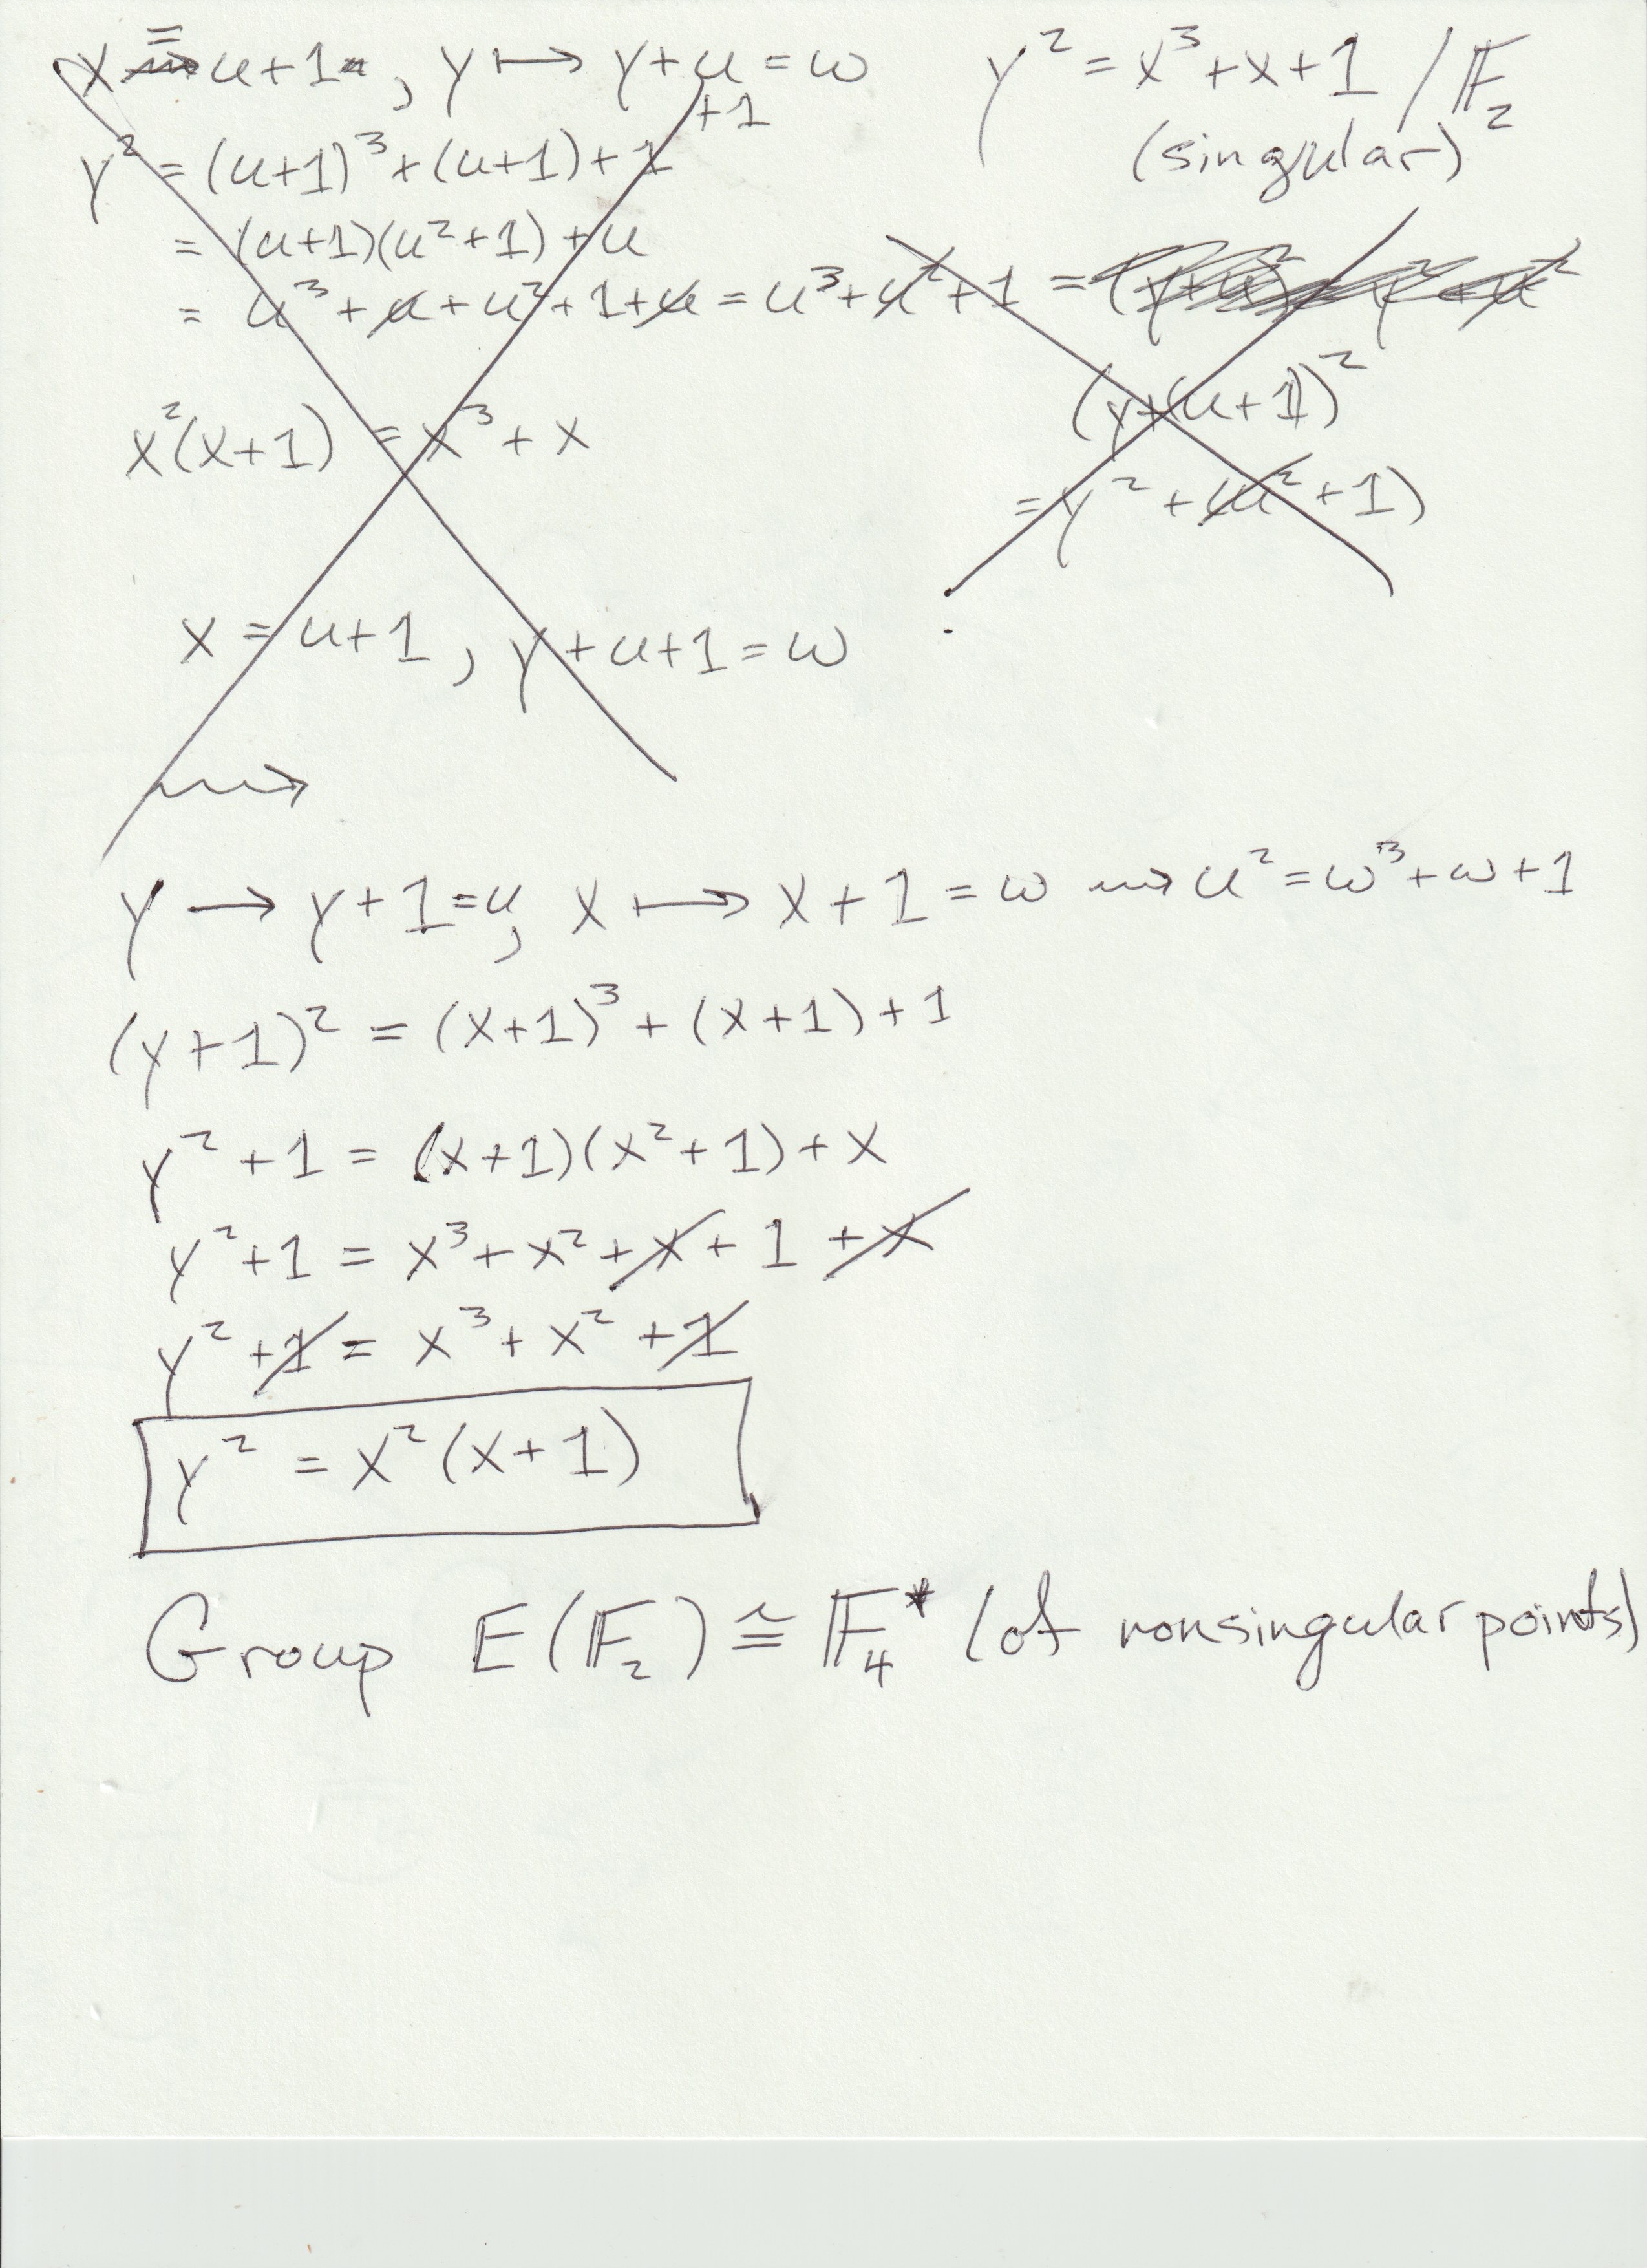 x = u+1, y ↦ y+u = ω
+1
y² = x³+x+1 / 𝔽₂
(singular)
y² = (u+1)³+(u+1)+1
= (u+1)(u²+1)+u
= u³+u+u²+1+u = u³+u²+1 =
(y+(u+1))²
= y²+u²+1)
x²(x+1) = x³+x
x = u+1, y+u+1 = ω
⇝
y → y+1=u, x ↦ x+1 = ω ⇝ u²=ω³+ω+1
(y+1)² = (x+1)³+(x+1)+1
y²+1 = (x+1)(x²+1)+x
y²+1 = x³+x²+x+1+x
y²+1 = x³+x²+1
y² = x²(x+1)
Group E(𝔽₂) ≅ 𝔽₄* (of nonsingular points)